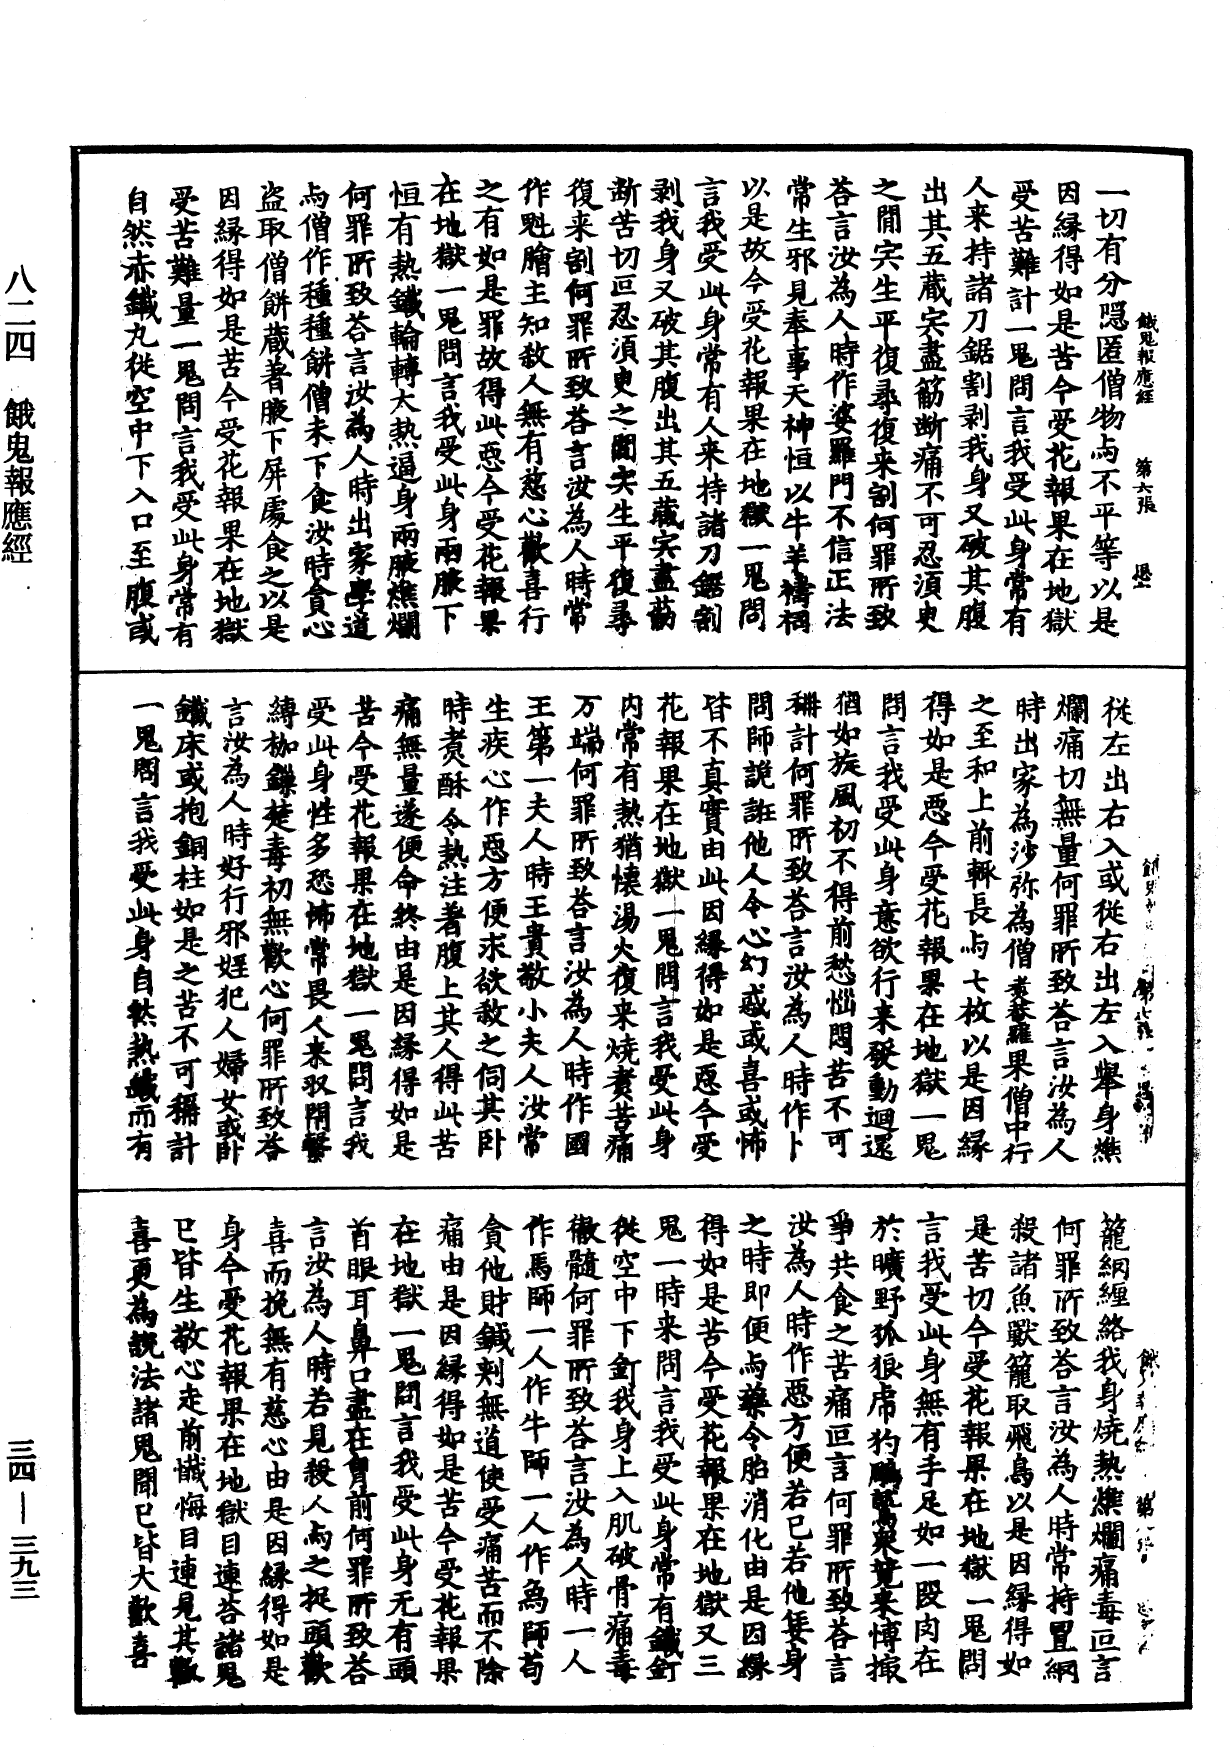 八二四　餓鬼報應經
三四—三九三
餓鬼報應經　第六張
一切有分隱匿僧物与不平等以是
因緣得如是苦今受花報果在地獄
受苦難計一鬼問言我受此身常有
人来持諸刀鋸割剥我身又破其腹
出其五藏宍盡筋断痛不可忍湏臾
之閒宍生平復尋復来割何罪所致
荅言汝為人時作婆羅門不信正法
常生邪見奉事天神恒以牛羊禱祠
以是故今受花報果在地獄一鬼問
言我受此身常有人来持諸刀鋸割
剥我身又破其腹出其五藏宍盡筋
断苦切叵忍湏臾之閒宍生平復尋
復来割何罪所致荅言汝為人時常
作魁膾主知煞人無有慈心歡喜行
之有如是罪故得此惡今受花報果
在地獄一鬼問言我受此身兩腋下
恒有熱鐵輪轉大熱逼身兩腋燋爛
何罪所致荅言汝為人時出家學道
与僧作種種餅僧未下食汝時貪心
盗取僧餅藏著腋下屏處食之以是
因緣得如是苦今受花報果在地獄
受苦難量一鬼問言我受此身常有
自然赤鐵丸從空中下入口至腹或
從左出右入或從右出左入舉身燋
爛痛切無量何罪所致荅言汝為人
時出家為沙弥為僧煑菴羅果僧中行
之至和上前輙長与七枚以是因緣
得如是惡今受花報果在地獄一鬼
問言我受此身意欲行来發動迴還
猶如旋風初不得前愁惱悶苦不可
稱計何罪所致荅言汝為人時作卜
問師詭誑他人令心幻惑或喜或怖
皆不真實由此因緣得如是惡今受
花報果在地獄一鬼問言我受此身
內常有熱猶懷湯火復来燒煑苦痛
万端何罪所致荅言汝為人時作國
王第一夫人時王貴敬小夫人汝常
生疾心作惡方便求欲煞之伺其卧
時煑酥令熱注著腹上其人得此苦
痛無量遂便命終由是因緣得如是
苦今受花報果在地獄一鬼問言我
受此身性多恐怖常畏人来収閇繫
縛枷鏁楚毒初無歡心何罪所致荅
言汝為人時好行邪婬犯人婦女或卧
鐵床或抱銅柱如是之苦不可稱計
一鬼問言我受此身自然熱鐵而有
籠網纏絡我身燒熱燋爛痛毒叵言
何罪所致荅言汝為人時常持罝網
殺諸魚獸籠取飛鳥以是因緣得如
是苦切今受花報果在地獄一鬼問
言我受此身無有手足如一段肉在
於曠野狐狼虎犳鵰鷲衆鳥来愽撮
爭共食之苦痛叵言何罪所致荅言
汝為人時作惡方便若已若他隻身
之時即便与藥令胎消化由是因緣
得如是苦今受花報果在地獄又三
鬼一時来問言我受此身常有鐵釘
從空中下釘我身上入肌破骨痛毒
徹髓何罪所致荅言汝為人時一人
作馬師一人作牛師一人作為師苟
貪他財鍼刾無道使受痛苦而不除
痛由是因緣得如是苦今受花報果
在地獄一鬼問言我受此身无有頭
首眼耳鼻口盡在胷前何罪所致荅
言汝為人時若見殺人与之捉頭歡
喜而挽無有慈心由是因緣得如是
身今受花報果在地獄目連荅諸鬼
已皆生敬心走前懺悔目連見其歡
喜更為說法諸鬼聞已皆大歡喜